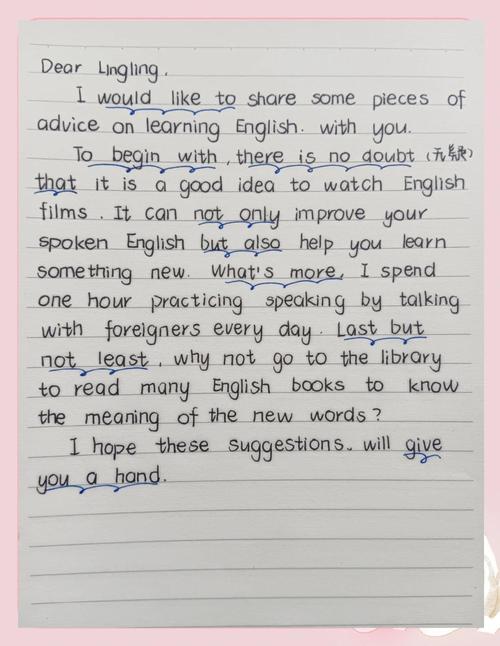 Dear Lingling,
I would like to share some pieces of
advice on learning English. with you.
To begin with, there is no doubt (无疑)
that it is a good idea to watch English
films. It can not only improve your
spoken English but also help you learn
something new. What's more, I spend
one hour practicing speaking by talking
with foreigners every day. Last but
not least, why not go to the library
to read many English books to know
the meaning of the new words?
I hope these suggestions. will give
you a hand.